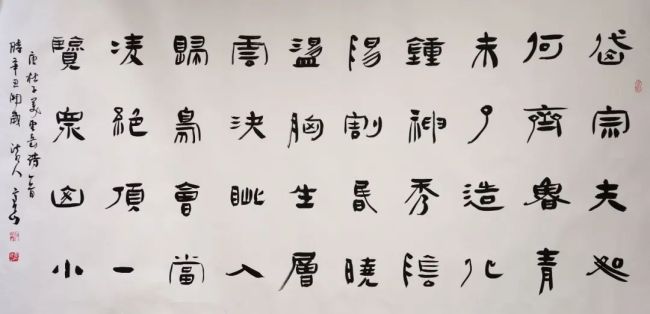 岱宗夫如
何齊魯青
未了造化
鍾神秀陰
陽割昏曉
盪胸生層
雲決眦入
歸鳥會當
凌絕頂一
覽眾山小
唐杜子美望岳詩一首
時辛丑開歲